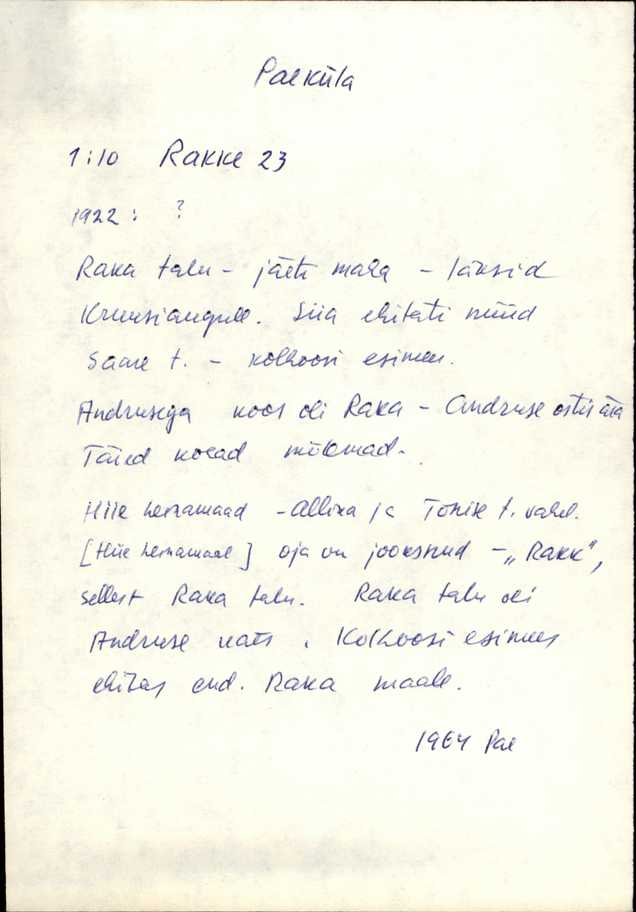 Paeküla
1:10 Rakke 23
1922: ?
Raka talu - jäeti maha - läksid
Kruusiaugule. Siia ehitati nüüd
Saare t. - kolhoosi esimees.
Andrusega koos oli Raka - Andruse ostis ära
Täied kohad mõlemad.
Hiie heinamaad - Allika ja Tõnise t. vahel.
[Hiie heinamaal] oja on jooksnud - „Rakk”,
sellest Raka talu. Raka talu oli
Andruse . Kolhoosi esimees
ehitas end. Raka maale.
1964 Pae